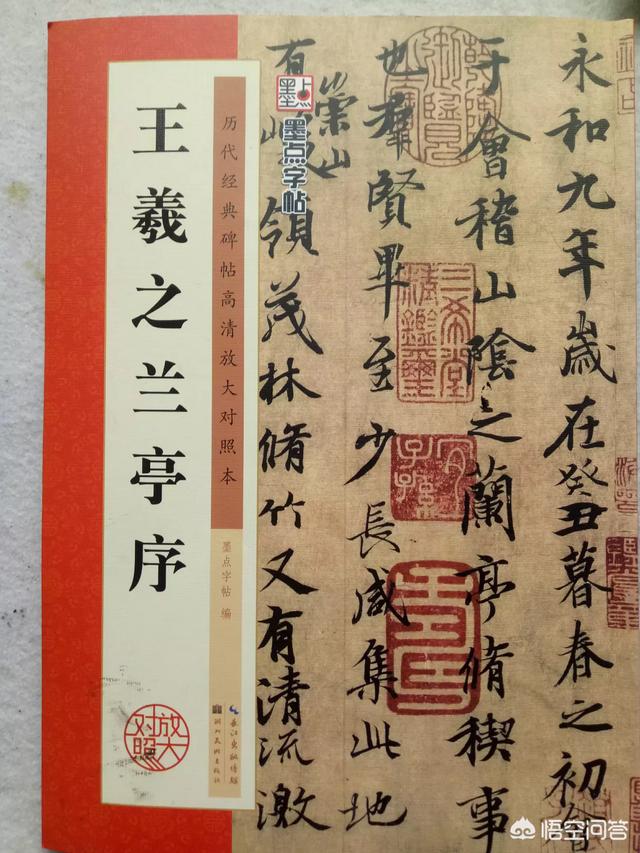 王羲之兰亭序
历代经典碑帖高清放大对照本
墨点字帖 编
长江出版传媒
湖北美术出版社
放大
对照
墨点
墨点字帖
永和九年歲在癸丑暮春之初會
于會稽山陰之蘭亭脩稧事
也羣賢畢至少長咸集此地
有崇山
領茂林脩竹又有清流激
三希堂
精鑑璽
宜子孫
悟空问答